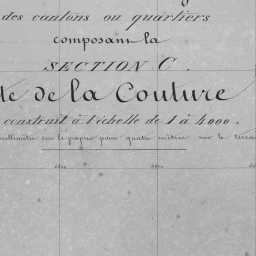 des cantons ou quartiers
composant la
SECTION C.
te de la Couture
construit à l'échelle de 1 à 4000.
sur le papier pour quatre mètres sur le terrain